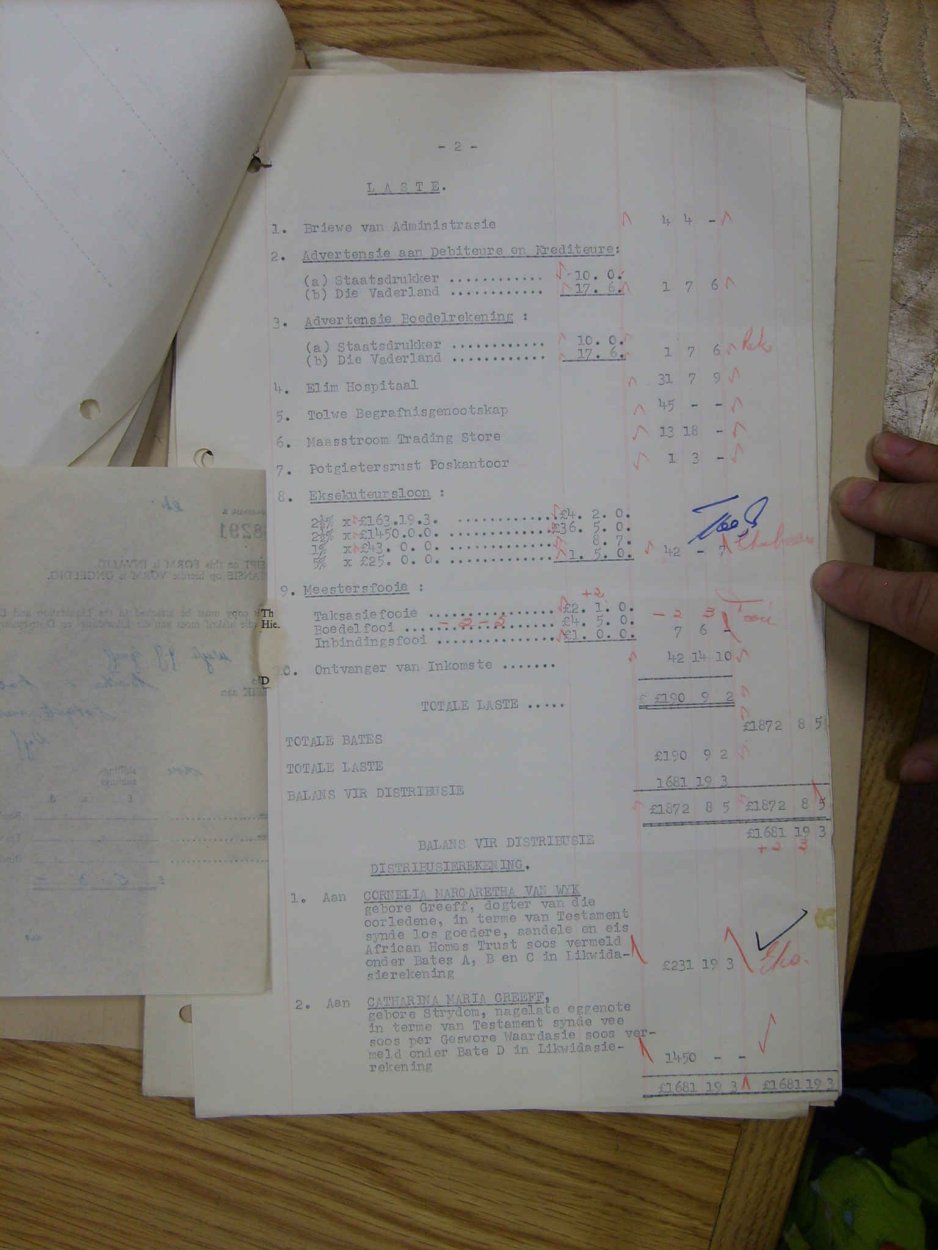 - 2 -
L A S T E.
1. Briewe van Administrasie 4 4 -
2. Advertensie aan Debiteure en Krediteure:
(a) Staatsdrukker ............ 10. 0.
(b) Die Vaderland ............ 17. 6. 1 7 6
3. Advertensie Boedelrekening :
(a) Staatsdrukker ............ 10. 0.
(b) Die Vaderland ............ 17. 6. 1 7 6
4. Elim Hospitaal 31 7 9
5. Tolwe Begrafnisgenootskap 45 - -
6. Maasstroom Trading Store 13 18 -
7. Potgietersrust Poskantoor 1 3 -
8. Eksekuteursloon :
2½% x £163.19.3. ............ £4. 2. 0.
2½% x £1450.0.0. ............ £36. 5. 0.
1% x £43. 0. 0. ............ 8. 7.
5% x £25. 0. 0. ............ £1. 5. 0. 42 - 7
9. Meestersfooie :
+2
Taksasiefooie ............ £2. 1. 0. - 2 3
Boedelfooi ............ £4. 5. 0.
Inbindingsfooi ............ £1. 0. 0. 7 6 -
10. Ontvanger van Inkomste ....... 42 14 10
TOTALE LASTE ..... £190 9 2
TOTALE BATES £1872 8 5
TOTALE LASTE £190 9 2
BALANS VIR DISTRIBUSIE 1681 19 3
£1872 8 5 £1872 8 5
BALANS VIR DISTRIBUSIE £1681 19 3
+2 3
DISTRIBUSIEREKENING.
1. Aan CORNELIA MARGARETHA VAN WYK
gebore Greeff, dogter van die
oorledene, in terme van Testament
synde los goedere, aandele en eis
African Homes Trust soos vermeld
onder Bates A, B en C in Likwida-
sierekening £231 19 3
2. Aan CATHARINA MARIA GREEFF,
gebore Strydom, nagelate eggenote
in terme van Testament synde vee
soos per Geswore Waardasie soos ver-
meld onder Bate D in Likwidasie-
rekening 1450 - -
£1681 19 3 £1681 19 3